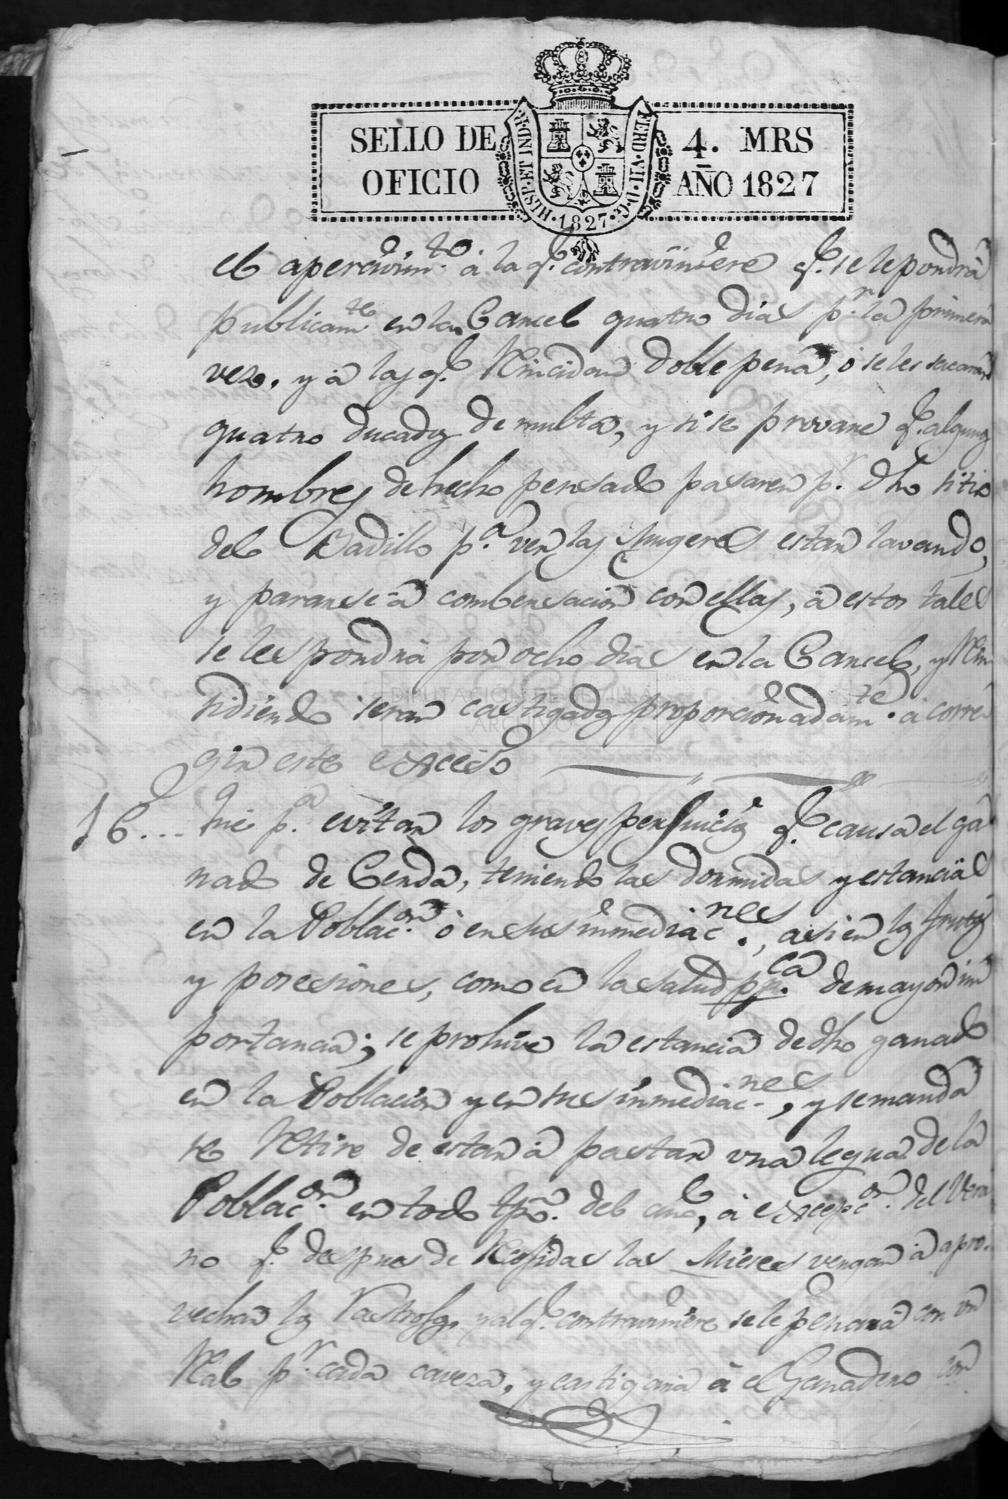 SELLO DE OFICIO
4. MRS
AÑO 1827
HISP. ET IND. R. FERD. VII. D. G. 1827
el apercivim.to a la q.e contraviniere q.e se le pondrá
publicam.te en la Carcel quatro dias p.r la primera
vez, y a las q.e Reincidan doble pena, o se les sacarán
quatro ducados de multa, y si se provare q.e algunos
hombres de hecho pensado pasaren p.r dho sitio
del Badillo p.a ver las Mugeres estan lavando,
y pararse a combersacion con ellas, a estos tales
se les pondrá por ocho dias en la Carcel, y Rein
sidiendo seran castigados proporcionadam.te a corre
gir este exceso
16... Que p.a evitar los graves perjuicios q.e causa el ga
nado de Cerda, teniendo las dormidas y estancias
en la Poblac.on o en sus inmediac.nes, asi en los frutos
y poseciones, como en la salud pp.ca de mayor im
portancia; se prohive la estancia de dho ganado
en la Poblacion y en sus inmediac.nes, y se manda
se Retire de estar a pastar una legua de la
Poblac.on en todo tpo. del año, a excepc.on del Vera
no q.e despues de Recojidas las Mieses vengan a apro-
vechar los Rastrojos, y al q.e contraviniere se le penará con un
Real p.r cada caveza, y castigará a el Ganadero con
DIPUTACIÓN DE SEVILLA